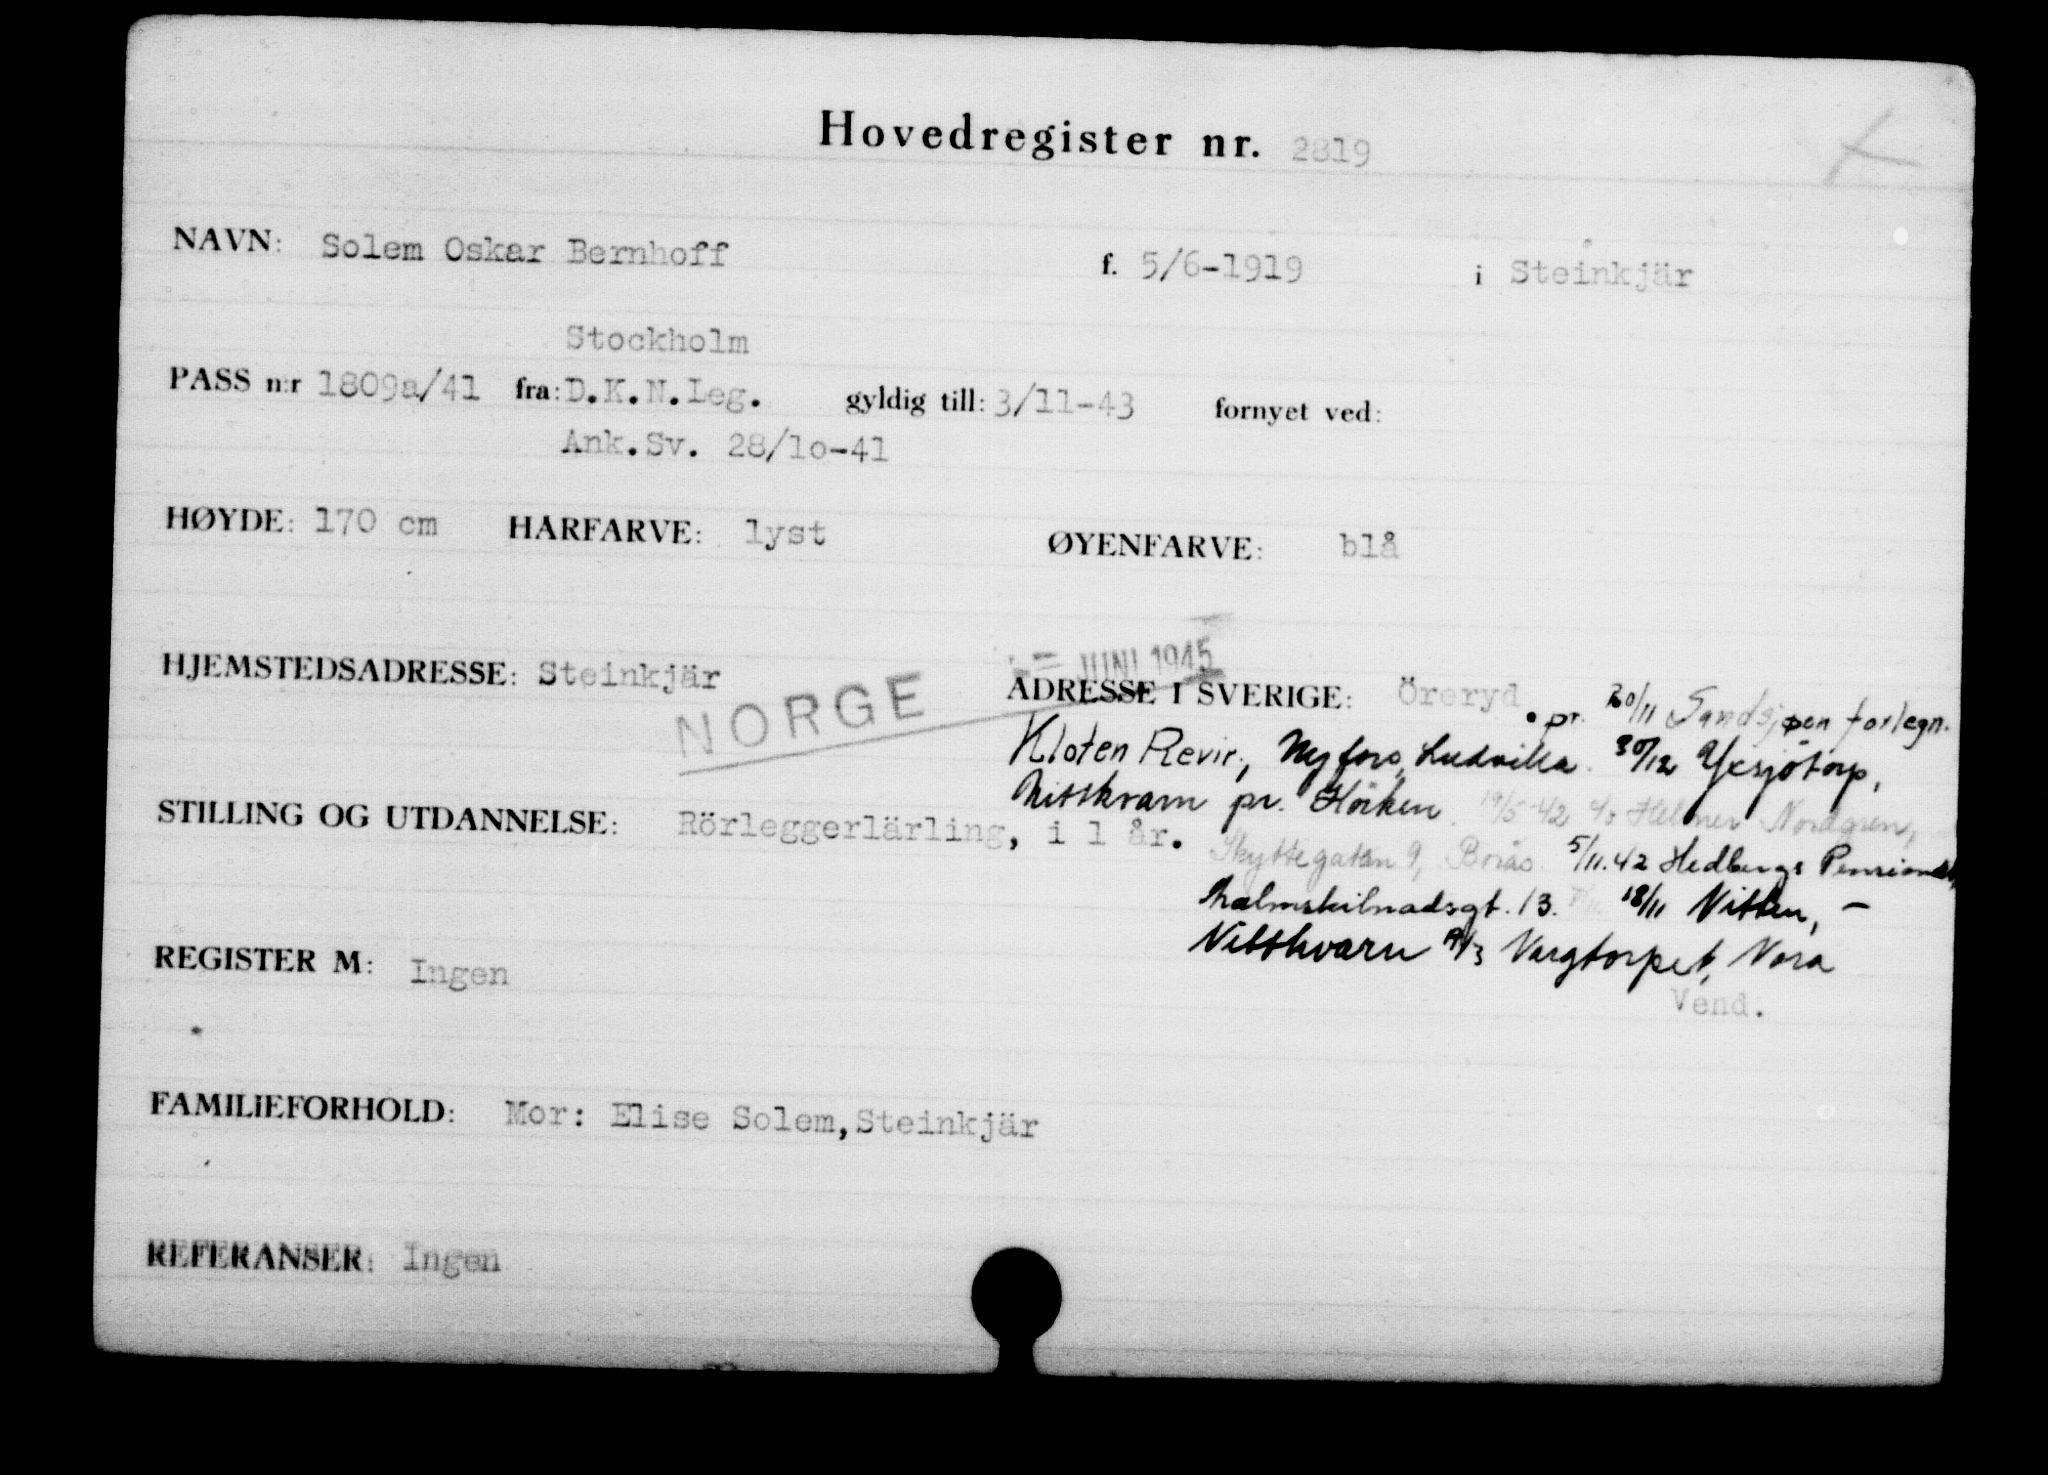 Hovedregister nr. 2819
NAVN: Solem Oskar Bernhoff f. 5/6-1919 i Steinkjär
Stockholm
PASS n:r 1809a/41 fra: D.K.N.Leg. gyldig till: 3/11-43 fornyet ved:
Ank.Sv. 28/1o-41
HØYDE: 170 cm HÅRFARVE: lyst ØYENFARVE: blå
JUNI 1945
HJEMSTEDSADRESSE: Steinkjär NORGE ADRESSE I SVERIGE: Öreryd. pr. 20/11 Sandsjøen forlegn.
Kloten Revir, Nyfors, Ludvika. 30/12 Yxsjötorp,
Nittkvarn pr. Hörken. 19/5-42 Helmer Nordgren,
STILLING OG UTDANNELSE: Rörleggerlärling, i 1 år. Skyttegatan 9, Borås. 5/11.42 Hedbergs Pensionat,
Malmskilnadsgt. 13. 18/11 Nitten, –
Nittkvarn Vargtorpet, Nora
REGISTER M: Ingen
Vend.
FAMILIEFORHOLD: Mor: Elise Solem, Steinkjär
REFERANSER: Ingen